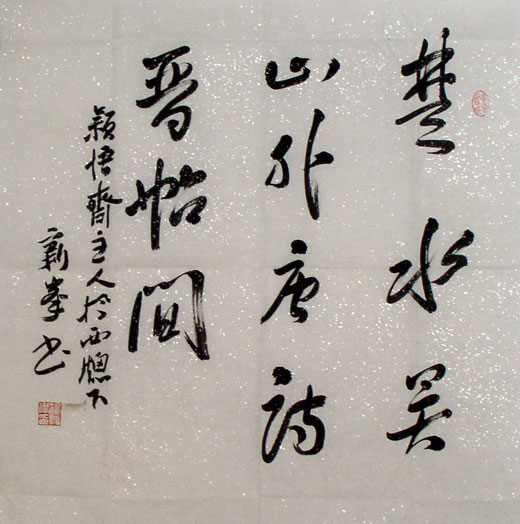 楚水吴
山外唐诗
晋帖间
颖悟斋主人於西窗下
新峰书